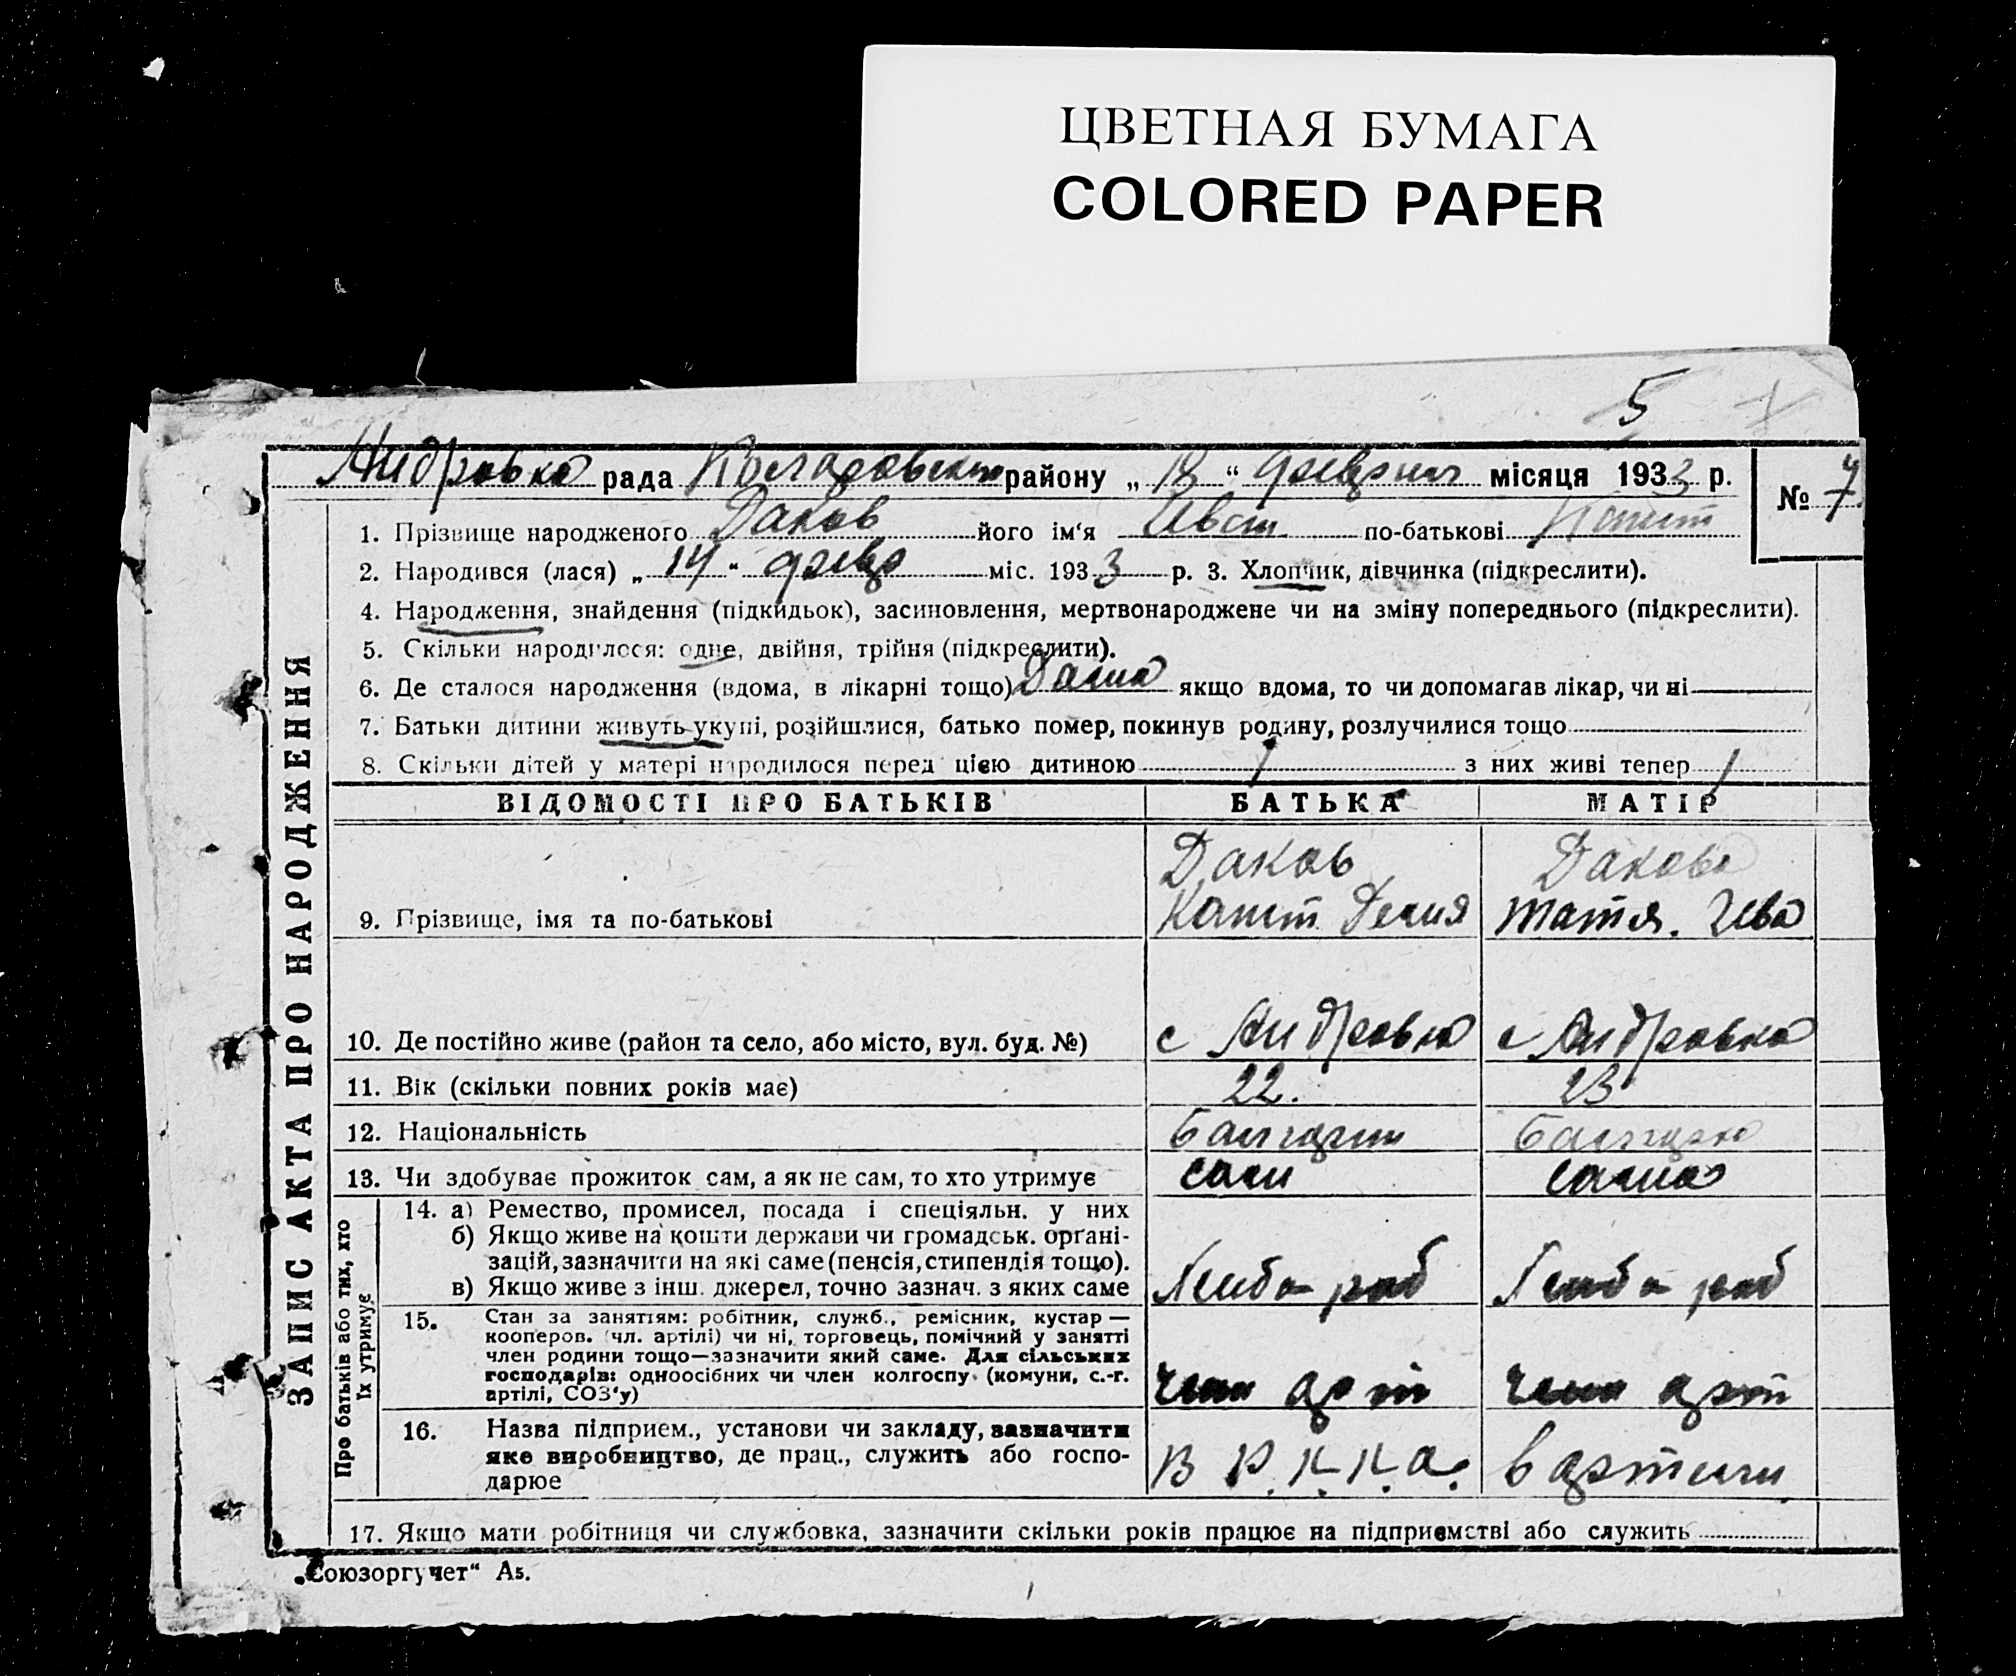 ЦВЕТНАЯ БУМАГА
COLORED PAPER
5
Андровка рада Коларовского району „18“ февраля місяця 1933 р.
№ 7
1. Прізвище народженого Даков його ім‘я Ивст по-батькові Конст
2. Народився (лася) „14“ февр міс. 1933 р. 3. Хлопчик, дівчинка (підкреслити).
4. Народження, знайдення (підкидьок), засиновлення, мертвонароджене чи на зміну попереднього (підкреслити).
5. Скільки народилося: одне, двійня, трійня (підкреслити).
6. Де сталося народження (вдома, в лікарні тощо) Дома якщо вдома, то чи допомагав лікар, чи ні
7. Батьки дитини живуть укупі, розійшлися, батько помер, покинув родину, розлучилися тощо
8. Скільки дітей у матері народилося перед цією дитиною 1 з них живі тепер 1
ЗАПИС АКТА ПРО НАРОДЖЕННЯ
ВІДОМОСТІ ПРО БАТЬКІВ БАТЬКА МАТІР
Даков Дакова
9. Прізвище, імя та по-батькові Конст. Демия Татя. Ива
10. Де постійно живе (район та село, або місто, вул. буд. №) с Андровка с Андровка
11. Вік (скільки повних років має) 22. 23
12. Національність Болгарин Болгарка
13. Чи здобуває прожиток сам, а як не сам, то хто утримує сам сама
Про батьків або тих, хто
їх утримує
14. а) Ремество, промисел, посада і спеціяльн. у них
б) Якщо живе на кошти держави чи громадськ. орґані-
зацій, зазначити на які саме (пенсія, стипендія тощо).
в) Якщо живе з інш. джерел, точно зазнач. з яких саме Хлиба роб Хлиба роб
15. Стан за заняттям: робітник, служб., ремісник, кустар —
кооперов. (чл. артілі) чи ні, торговець, помічний у занятті
член родини тощо—зазначити який саме. Для сільських
господарів: одноосібних чи член колгоспу (комуни, с.-г.
артілі, СОЗ‘у) член арт член арт
16. Назва підприєм., установи чи закладу, зазначити
яке виробництво, де прац., служить або госпо-
дарює В Р.К.К.А. в артели
17. Якщо мати робітниця чи службовка, зазначити скільки років працює на підприємстві або служить
„Союзоргучет“ А5.